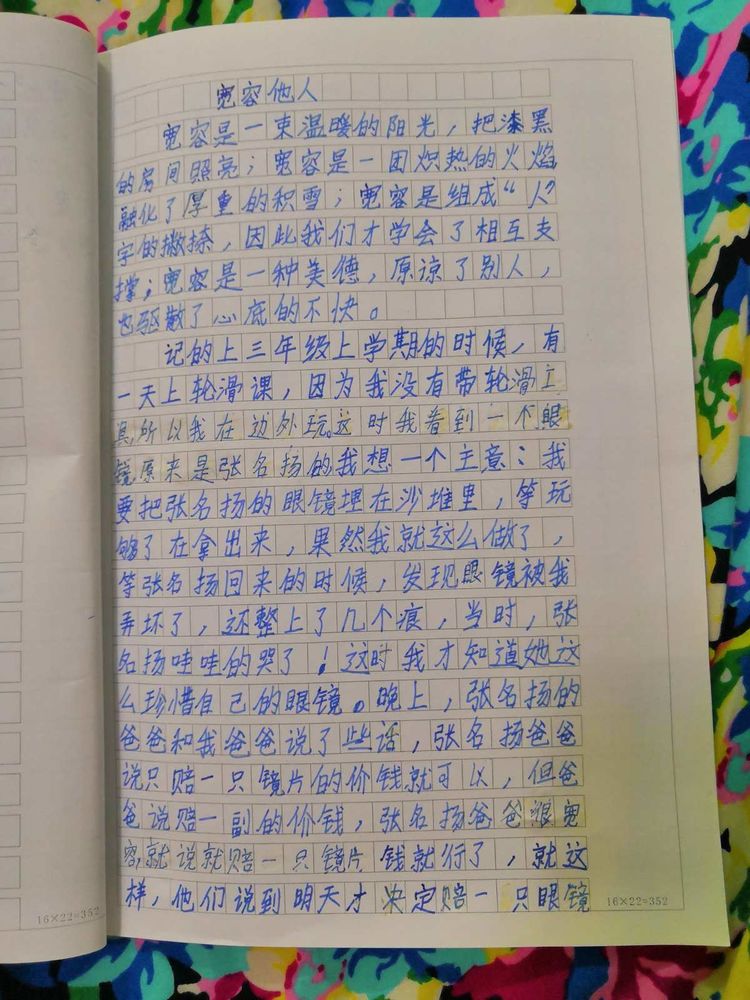 宽容他人
宽容是一束温暖的阳光，把漆黑
的房间照亮；宽容是一团炽热的火焰
融化了厚重的积雪；宽容是组成“人”
字的撇捺，因此我们才学会了相互支
撑；宽容是一种美德，原谅了别人，
也驱散了心底的不快。
记的上三年级上学期的时候，有
一天上轮滑课，因为我没有带轮滑工
具，所以我在边外玩。这时我看到一个眼
镜原来是张名扬的我想一个主意：我
要把张名扬的眼镜埋在沙堆里，等玩
够了在拿出来，果然我就这么做了，
等张名扬回来的时候，发现眼镜被我
弄坏了，还整上了几个痕，当时，张
名扬哇哇的哭了！这时我才知道她这
么珍惜自己的眼镜。晚上，张名扬的
爸爸和我爸爸说了些话，张名扬爸爸
说只赔一只镜片的价钱就可以，但爸
爸说赔一副的价钱，张名扬爸爸很宽
容，就说就赔一只镜片钱就行了，就这
样，他们说到明天才决定赔一只眼镜
16×22=352
16×22=352